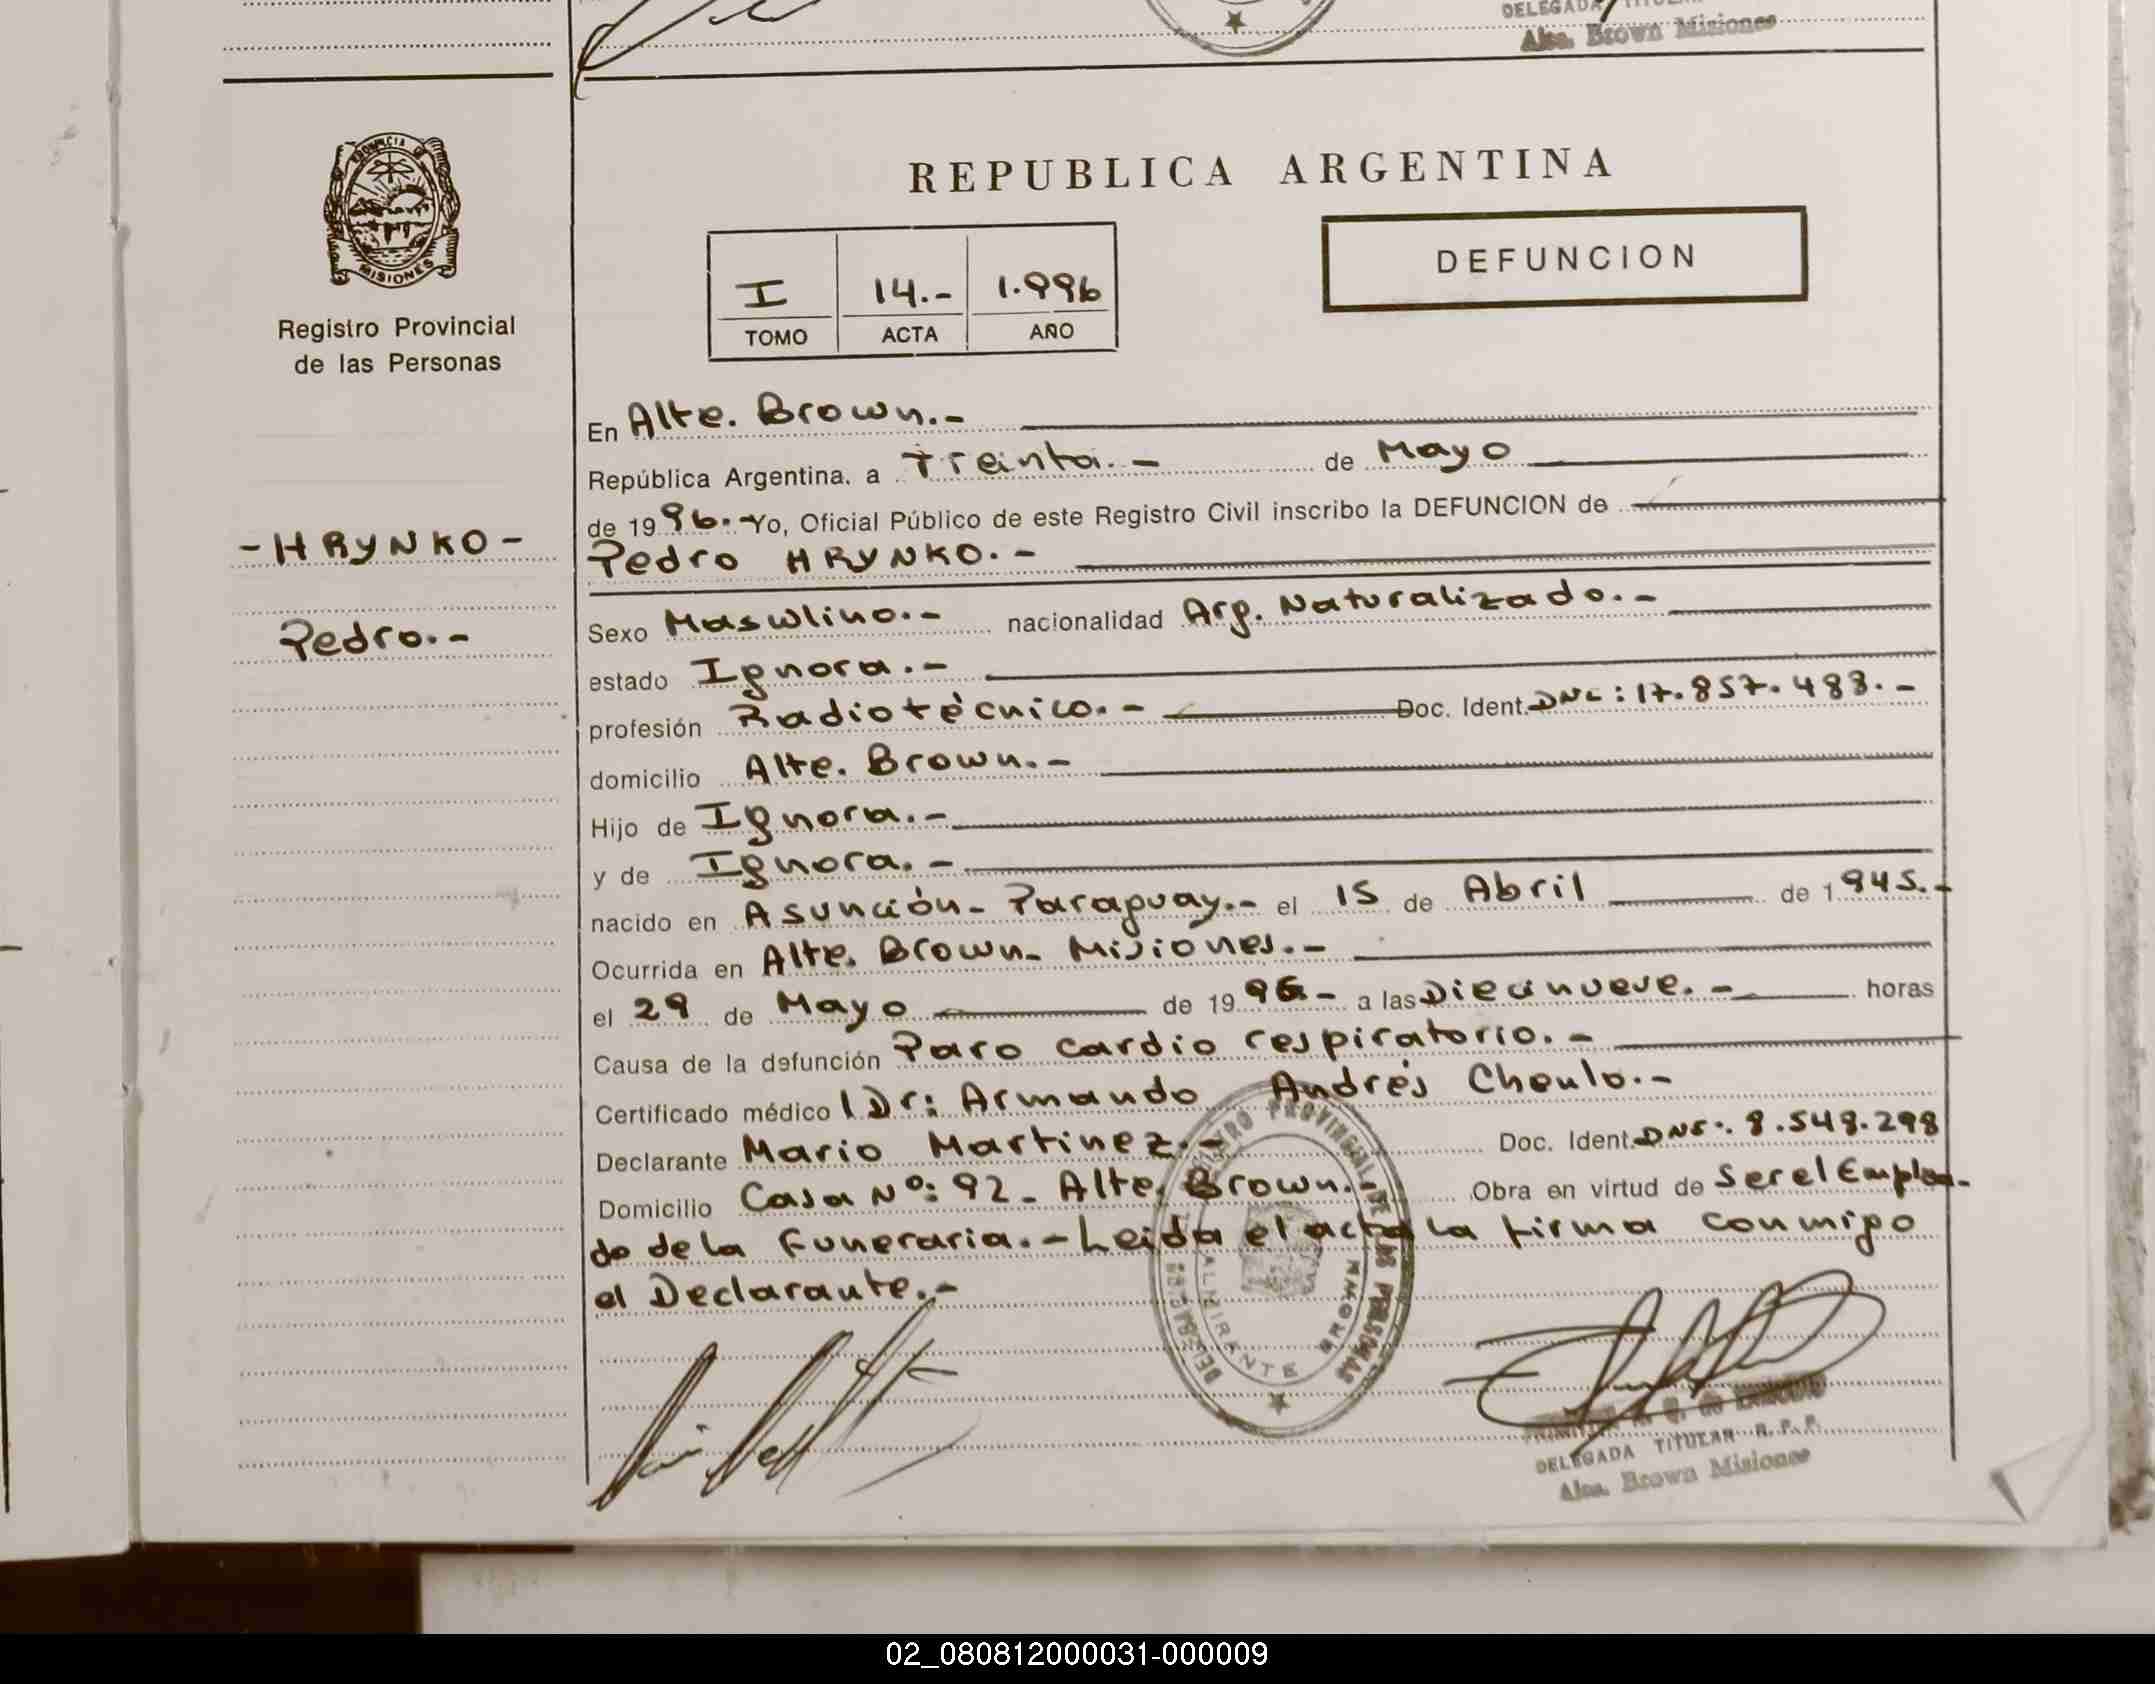 DELEGADA TITULAR
Alte. Brown Misiones
PROVINCIA DE
MISIONES
Registro Provincial
de las Personas
- HRYNKO -
Pedro.-
REPUBLICA ARGENTINA
DEFUNCION
I 14.- 1.996
TOMO ACTA AÑO
En Alte. Brown.-
República Argentina, a Treinta.- de Mayo
de 1996.- Yo, Oficial Público de este Registro Civil inscribo la DEFUNCION de
Pedro HRYNKO.-
Sexo Masculino.- nacionalidad Arg. Naturalizado.-
estado Ignora.-
profesión Radiotècnico.- Doc. Ident. DNI: 17.857.483.-
domicilio Alte. Brown.-
Hijo de Ignora.-
y de Ignora.-
nacido en Asunción- Paraguay.- el 15 de Abril de 1945.-
Ocurrida en Alte. Brown- Misiones.-
el 29 de Mayo de 1996- a las Diecinueve.- horas
Causa de la defunción Paro cardio respiratorio.-
Certificado médico Dr: Armando Andrés Choulo.-
Declarante Mario Martinez.- Doc. Ident. DNI: 8.548.298
Domicilio Casa Nº: 92- Alte. Brown.- Obra en virtud de Ser el Emplea-
do de la Funeraria.- Leida el acta la firma conmigo
el Declarante.-
REGISTRO PROVINCIAL DE LAS PERSONAS
ALMIRANTE BROWN
DELEGADA TITULAR R.P.P.
Alte. Brown Misiones
02_080812000031-000009